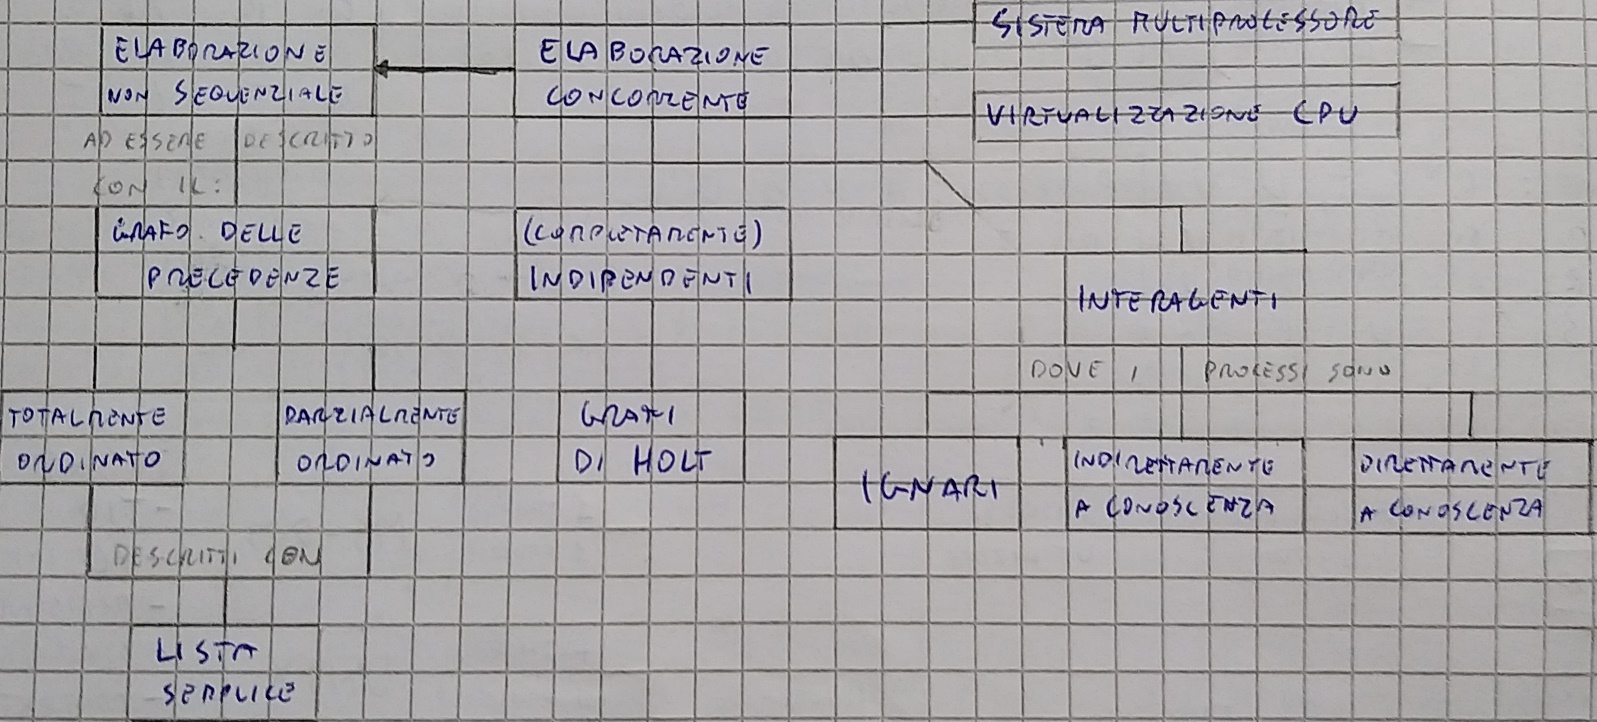 SISTEMA MULTIPROCESSORE
ELABORAZIONE
NON SEQUENZIALE
ELABORAZIONE
CONCORRENTE
VIRTUALIZZAZIONE CPU
AD ESSERE DESCRITTO
CON IL:
GRAFO DELLE
PRECEDENZE
(COMPLETAMENTE)
INDIPENDENTI
INTERAGENTI
DOVE I PROCESSI SONO
TOTALMENTE
ORDINATO
PARZIALMENTE
ORDINATO
GRAFI
DI HOLT
IGNARI
INDIRETTAMENTE
A CONOSCENZA
DIRETTAMENTE
A CONOSCENZA
DESCRITTI CON
LISTA
SEMPLICE